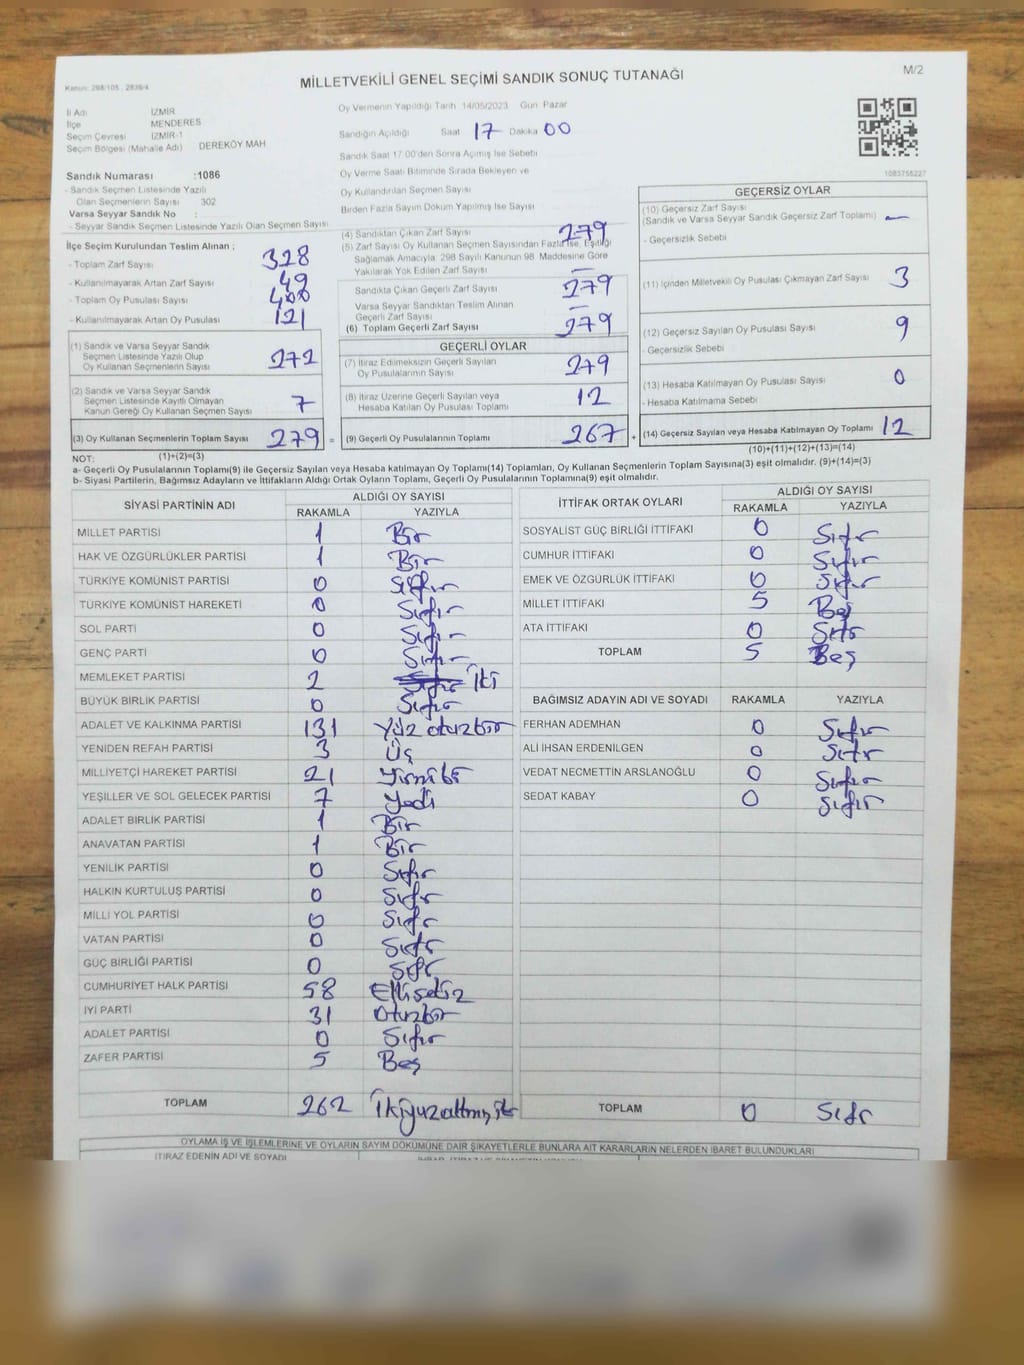 M/2
Kanun: 298/105 , 2839/4
MİLLETVEKİLİ GENEL SEÇİMİ SANDIK SONUÇ TUTANAĞI
İl Adı İZMİR
İlçe MENDERES
Seçim Çevresi İZMİR-1
Seçim Bölgesi (Mahalle Adı) DEREKÖY MAH
Sandık Numarası :1086
- Sandık Seçmen Listesinde Yazılı
Olan Seçmenlerin Sayısı 302
Varsa Seyyar Sandık No :
- Seyyar Seçmen Listesinde Yazılı Olan Seçmen Sayısı
İlçe Seçim Kurulundan Teslim Alınan ;
- Toplam Zarf Sayısı 328
- Kullanılmayarak Artan Zarf Sayısı 49
- Toplam Oy Pusulası Sayısı 400
- Kullanılmayarak Artan Oy Pusulası 121
(1) Sandık ve Varsa Seyyar Sandık
Seçmen Listesinde Yazılı Olup
Oy Kullanan Seçmenlerin Sayısı 272
(2) Sandık ve Varsa Seyyar Sandık
Seçmen Listesinde Kayıtlı Olmayan
Kanun Gereği Oy Kullanan Seçmen Sayısı 7
(3) Oy Kullanan Seçmenlerin Toplam Sayısı 279 =
(1)+(2)=(3)
Oy Vermenin Yapıldığı Tarih 14/05/2023 Gün Pazar
Sandığın Açıldığı Saat 17 Dakika 00
Sandık Saat 17:00'den Sonra Açılmış İse Sebebi
Oy Verme Saati Bitiminde Sırada Bekleyen ve
Oy Kullandırılan Seçmen Sayısı
Birden Fazla Sayım Döküm Yapılmış İse Sayısı
(4) Sandıktan Çıkan Zarf Sayısı 279
(5) Zarf Sayısı Oy Kullanan Seçmen Sayısından Fazla İse, Eşitliği
Sağlamak Amacıyla 298 Sayılı Kanunun 98 Maddesine Göre
Yakılarak Yok Edilen Zarf Sayısı —
Sandıkta Çıkan Geçerli Zarf Sayısı 279
Varsa Seyyar Sandıktan Teslim Alınan
Geçerli Zarf Sayısı —
(6) Toplam Geçerli Zarf Sayısı 279
GEÇERLİ OYLAR
(7) İtiraz Edilmeksizin Geçerli Sayılan
Oy Pusulalarının Sayısı 279
(8) İtiraz Üzerine Geçerli Sayılan veya
Hesaba Katılan Oy Pusulası Toplamı 12
(9) Geçerli Oy Pusulalarının Toplamı 267 +
1083756227
GEÇERSİZ OYLAR
(10) Geçersiz Zarf Sayısı
(Sandık ve Varsa Seyyar Sandık Geçersiz Zarf Toplamı) —
- Geçersizlik Sebebi
(11) İçinden Milletvekili Oy Pusulası Çıkmayan Zarf Sayısı 3
(12) Geçersiz Sayılan Oy Pusulası Sayısı 9
- Geçersizlik Sebebi
(13) Hesaba Katılmayan Oy Pusulası Sayısı 0
- Hesaba Katılmama Sebebi
(14) Geçersiz Sayılan veya Hesaba Katılmayan Oy Toplamı 12
(10)+(11)+(12)+(13)=(14)
NOT:
a- Geçerli Oy Pusulalarının Toplamı(9) ile Geçersiz Sayılan veya Hesaba katılmayan Oy Toplamı(14) Toplamları, Oy Kullanan Seçmenlerin Toplam Sayısına(3) eşit olmalıdır. (9)+(14)=(3)
b- Siyasi Partilerin, Bağımsız Adayların ve İttifakların Aldığı Ortak Oyların Toplamı, Geçerli Oy Pusulalarının Toplamına(9) eşit olmalıdır.
SİYASİ PARTİNİN ADI ALDIĞI OY SAYISI
RAKAMLA YAZIYLA
MİLLET PARTİSİ 1 Bir
HAK VE ÖZGÜRLÜKLER PARTİSİ 1 Bir
TÜRKİYE KOMÜNİST PARTİSİ 0 Sıfır
TÜRKİYE KOMÜNİST HAREKETİ 0 Sıfır
SOL PARTİ 0 Sıfır
GENÇ PARTİ 0 Sıfır
MEMLEKET PARTİSİ 2 Sıfır İki
BÜYÜK BİRLİK PARTİSİ 0 Sıfır
ADALET VE KALKINMA PARTİSİ 131 Yüz otuzbir
YENİDEN REFAH PARTİSİ 3 Üç
MİLLİYETÇİ HAREKET PARTİSİ 21 Yirmibir
YEŞİLLER VE SOL GELECEK PARTİSİ 7 Yedi
ADALET BİRLİK PARTİSİ 1 Bir
ANAVATAN PARTİSİ 1 Bir
YENİLİK PARTİSİ 0 Sıfır
HALKIN KURTULUŞ PARTİSİ 0 Sıfır
MİLLİ YOL PARTİSİ 0 Sıfır
VATAN PARTİSİ 0 Sıfır
GÜÇ BİRLİĞİ PARTİSİ 0 Sıfır
CUMHURİYET HALK PARTİSİ 58 Ellisekiz
İYİ PARTİ 31 Otuzbir
ADALET PARTİSİ 0 Sıfır
ZAFER PARTİSİ 5 Beş
TOPLAM 262 İkiyüzaltmışiki
İTTİFAK ORTAK OYLARI ALDIĞI OY SAYISI
RAKAMLA YAZIYLA
SOSYALİST GÜÇ BİRLİĞİ İTTİFAKI 0 Sıfır
CUMHUR İTTİFAKI 0 Sıfır
EMEK VE ÖZGÜRLÜK İTTİFAKI 0 Sıfır
MİLLET İTTİFAKI 5 Beş
ATA İTTİFAKI 0 Sıfır
TOPLAM 5 Beş
BAĞIMSIZ ADAYIN ADI VE SOYADI RAKAMLA YAZIYLA
FERHAN ADEMHAN 0 Sıfır
ALİ İHSAN ERDENİLGEN 0 Sıfır
VEDAT NECMETTİN ARSLANOĞLU 0 Sıfır
SEDAT KABAY 0 Sıfır
TOPLAM 0 Sıfır
OYLAMA İŞ VE İŞLEMLERİNE VE OYLARIN SAYIM DÖKÜMÜNE DAİR ŞİKAYETLERLE BUNLARA AİT KARARLARIN NELERDEN İBARET BULUNDUKLARI
İTİRAZ EDENİN ADI VE SOYADI